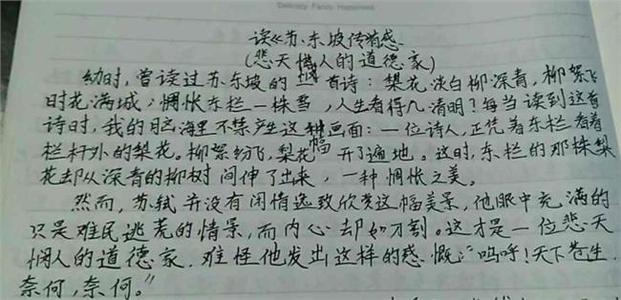 Delicacy Fancy Happiness
读《苏东坡传》有感
(悲天悯人的道德家)
幼时,曾读过苏东坡的一首诗:梨花淡白柳深青,柳絮飞
时花满城;惆怅东栏一株雪,人生看得几清明?每当读到这首
诗时,我的脑海里不禁产生这种画面:一位诗人,正凭着东栏看着
栏杆外的梨花。柳絮纷飞,梨花开了遍地。这时,东栏的那株梨
幅
花却从深青的柳树间伸了出来,一种惆怅之美。
然而,苏轼并没有闲情逸致欣赏这幅美景,他眼中充满的
只是难民逃荒的情景,而内心却如刀割。这才是一位悲天
悯人的道德家.难怪他发出这样的感慨:“呜呼!天下苍生
奈何,奈何。”